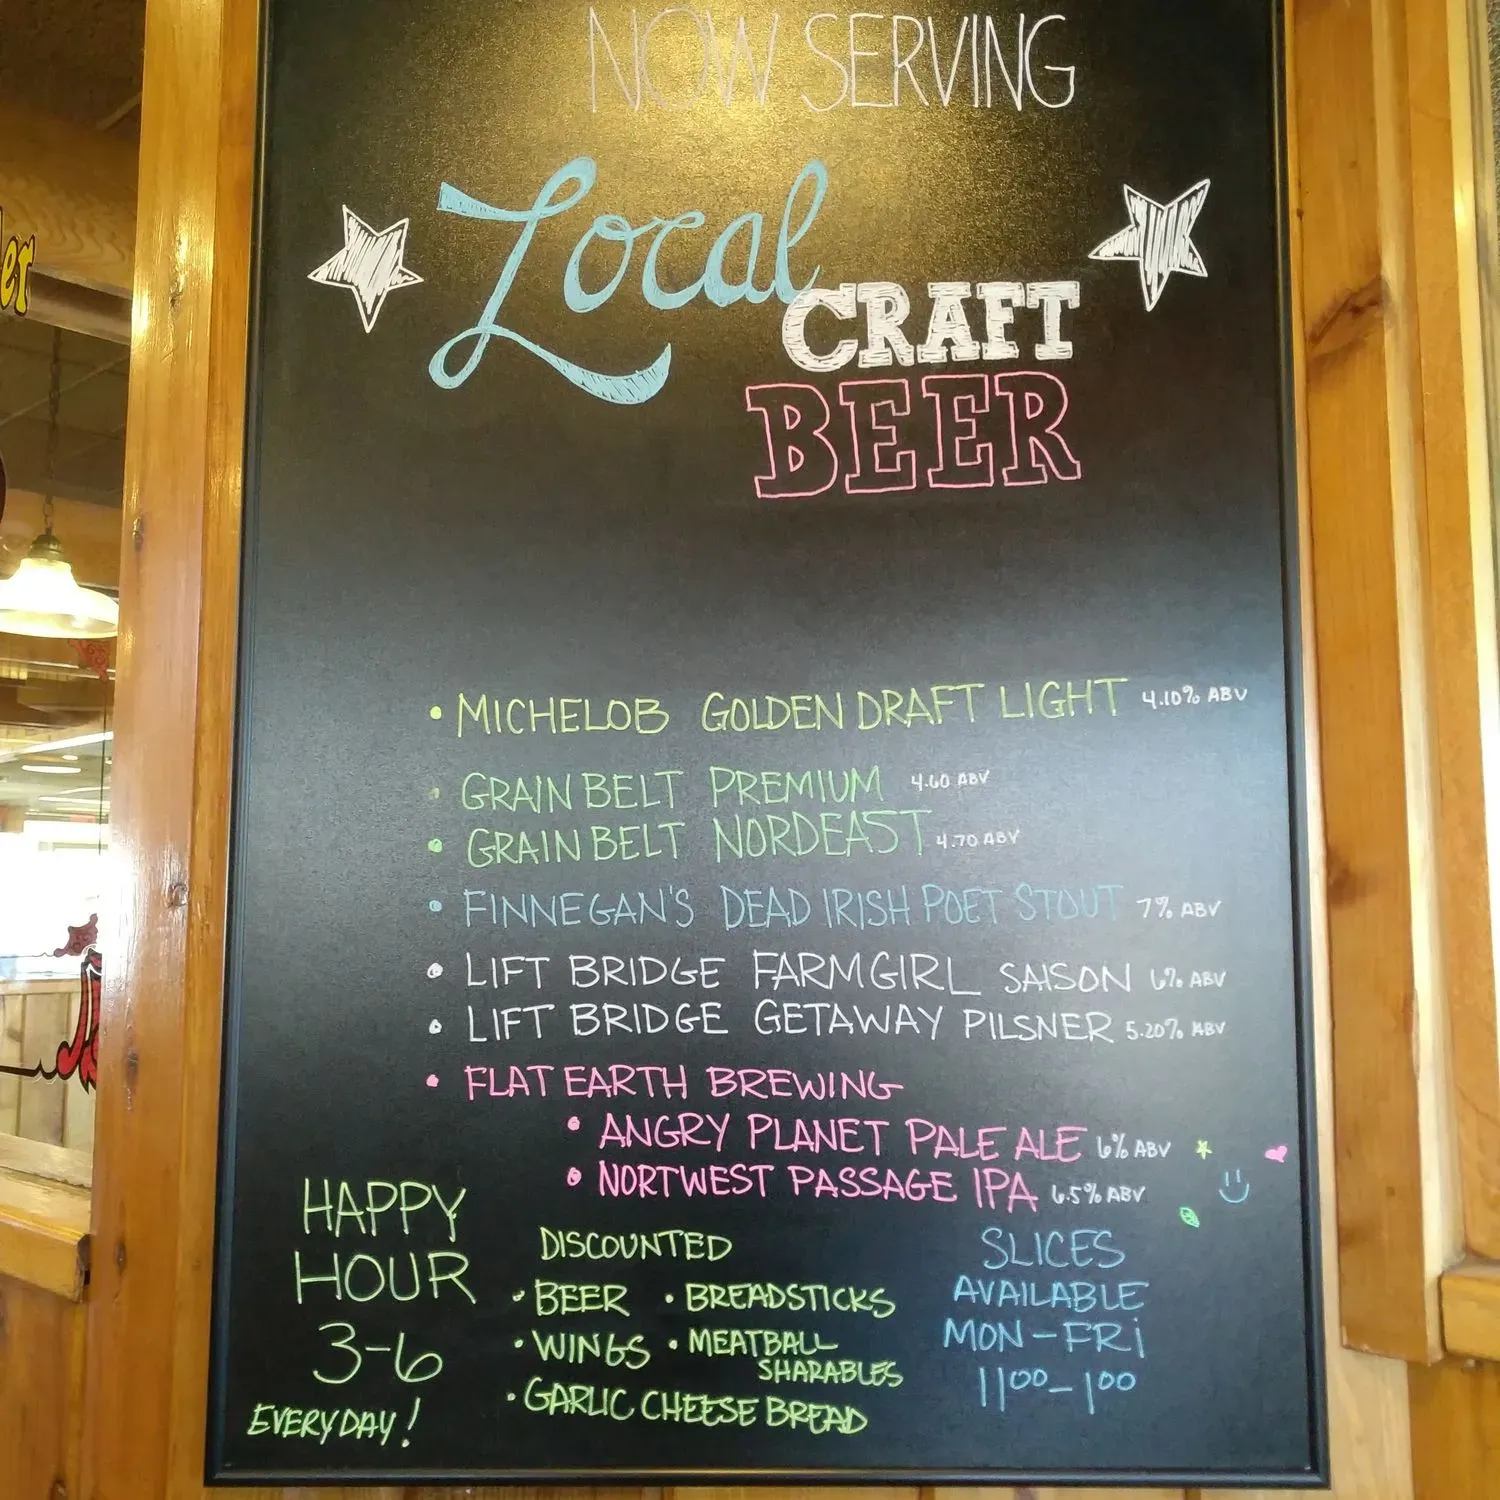 NOW SERVING
Local
CRAFT
BEER
• MICHELOB GOLDEN DRAFT LIGHT 4.10% ABV
• GRAIN BELT PREMIUM 4.60 ABV
• GRAIN BELT NORDEAST 4.70 ABV
• FINNEGAN'S DEAD IRISH POET STOUT 7% ABV
• LIFT BRIDGE FARMGIRL SAISON 6% ABV
• LIFT BRIDGE GETAWAY PILSNER 5.20% ABV
• FLAT EARTH BREWING
• ANGRY PLANET PALE ALE 6% ABV
• NORTWEST PASSAGE IPA 6.5% ABV
HAPPY
HOUR
3-6
EVERYDAY!
DISCOUNTED
• BEER • BREADSTICKS
• WINGS • MEATBALL
SHARABLES
• GARLIC CHEESE BREAD
SLICES
AVAILABLE
MON-FRI
1100-100
er